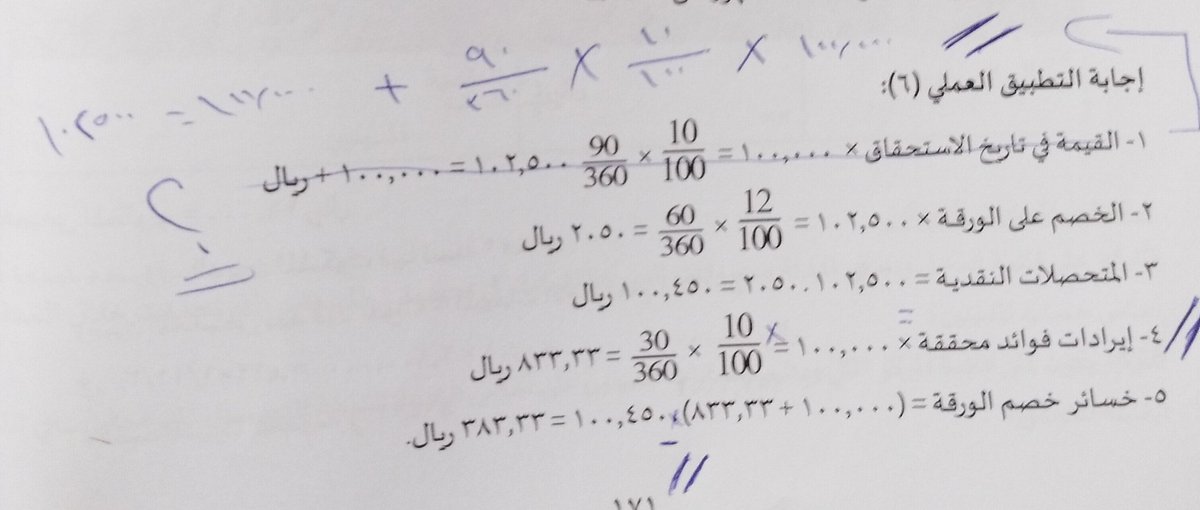 ١٠٠,٠٠٠ × ١٠/١٠٠ × ٩٠/٣٦٠ + ١٠٠,٠٠٠ = ١٠٢٥٠٠
إجابة التطبيق العملي (٦):
١- القيمة في تاريخ الاستحقاق × ١٠٠,٠٠٠ = 10/100 × 90/360 ١٠٢,٥٠٠ = ١٠٠,٠٠٠ + ريال
؟
٢- الخصم على الورقة × ١٠٢,٥٠٠ = 12/100 × 60/360 = ٢٠٥٠ ريال
٣- المتحصلات النقدية = ١٠٢,٥٠٠..٢٠٥٠ = ١٠٠,٤٥٠ ريال
٤- إيرادات فوائد محققة × ١٠٠,٠٠٠ = 10/100 × 30/360 = ٨٣٣,٣٣ ريال
٥- خسائر خصم الورقة = (١٠٠,٠٠٠ + ٨٣٣,٣٣) ١٠٠,٤٥٠ = ٣٨٣,٣٣ ريال.
١٧١